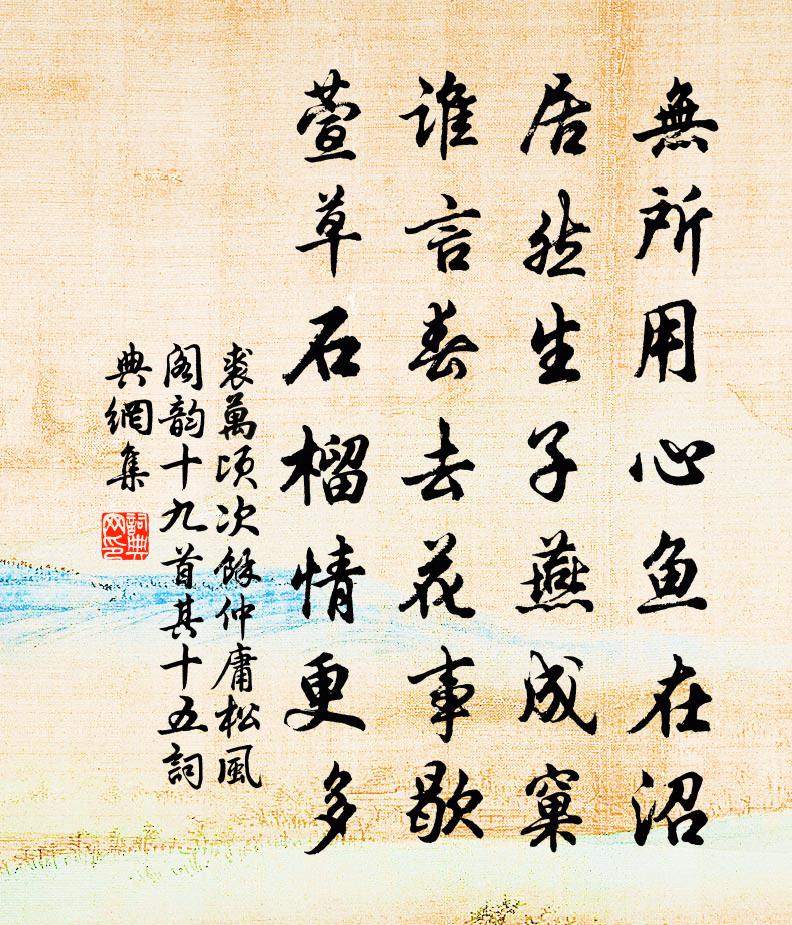 無所用心鱼在沼
居然生子燕成窠
谁言春去花事歇
萱草石榴情更多
裘萬頃次餘仲庸松風
阁韵十九首其十五詞
典網集
詞典網印